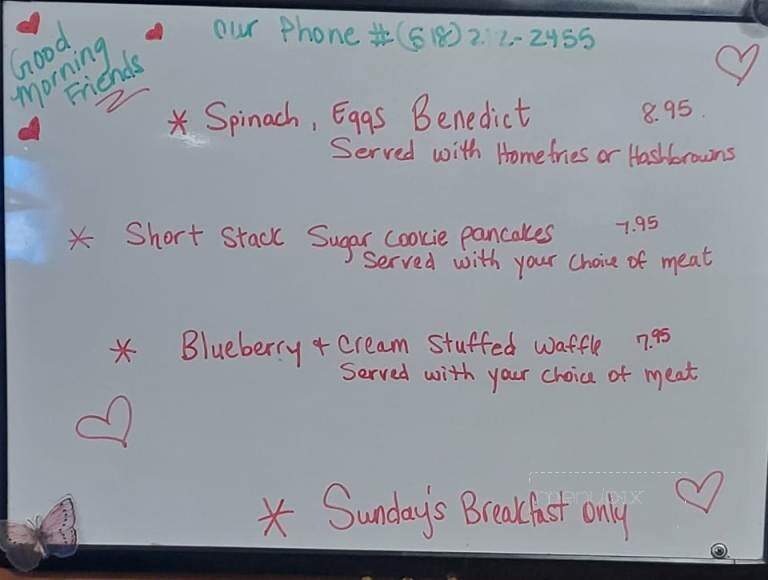 Our Phone # (518) 212-2455
Good
Morning
Friends
* Spinach, Eggs Benedict 8.95
Served with Homefries or Hashbrowns
* Short Stack Sugar Cookie Pancakes 7.95
Served with your Choice of meat
* Blueberry + Cream Stuffed Waffle 7.95
Served with your choice of meat
menupix
* Sunday's Breakfast only